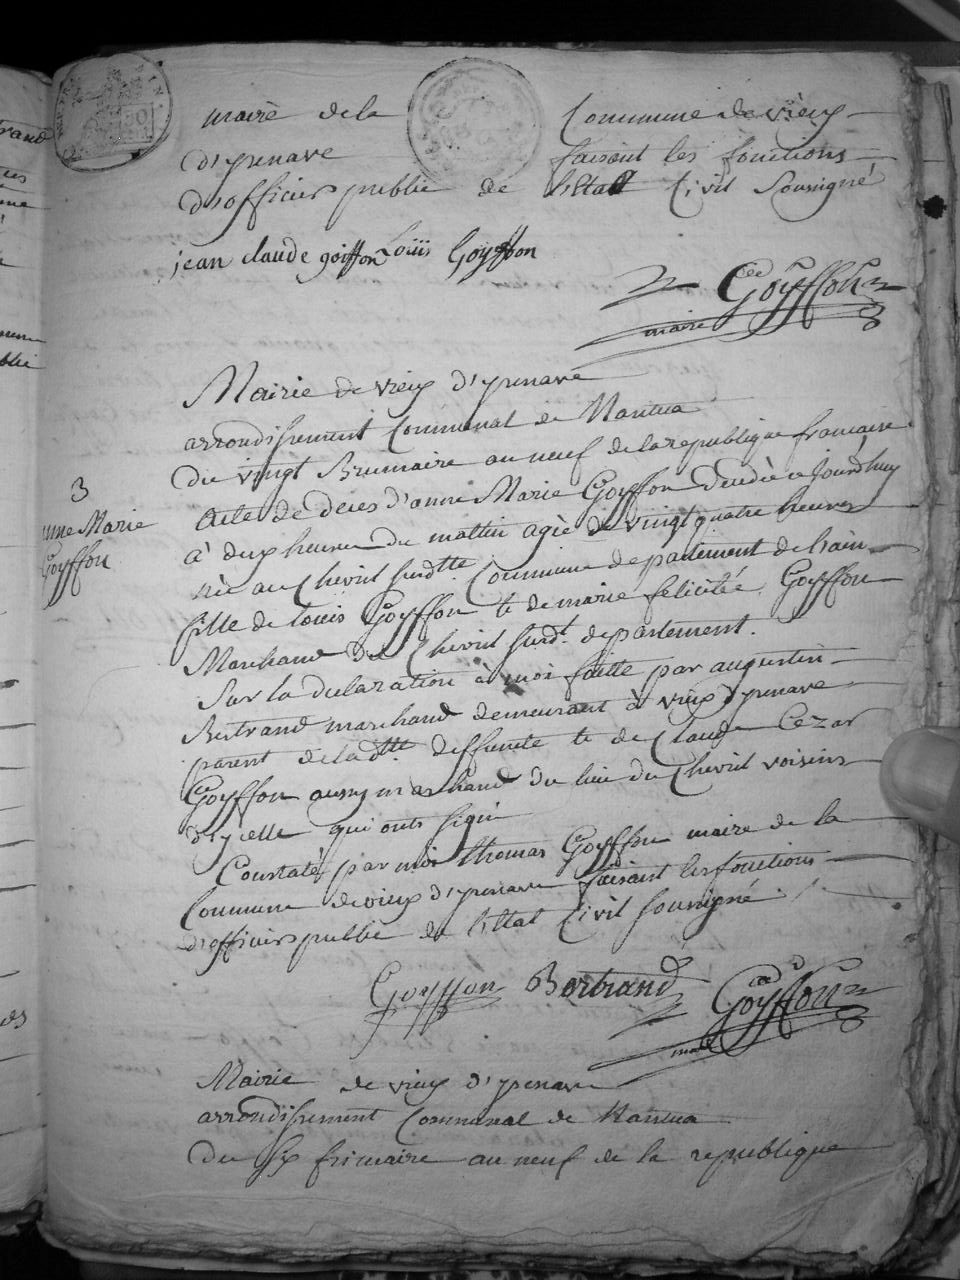 maire de la Commune de vieux
d'yzenave faisant les fonctions
d'officier publie de l'Etat Civil Sousigné
jean claude goiffon Louis Goyffon
Goyffon
maire
Mairie de vieux d'yzenave
arrondissement Communal de Nantua
du vingt Brumaire an neuf de la republique francaise
3
anne Marie
Goyffon
Acte de decés d'anne Marie Goyffon decedée ce Jourdhuy
à deux heures du mattin agée de vingt quatre heures
née au Chevril surdtte Commune departement de Lain
fille de Louis Goyffon te de marie felicitée Goyffon
Marchand du Chevril surdt departement.
Sur la declaration à moi faitte par augustin
Bertrand marchand demeurant à vieux d'yzenave
parent de la dtte deffunte te de Claude Cezar
Goyffon aussy marchand du lieu du Chevril voisins
d'iycelle qui onts signé
Constaté par moi thomas Goyffon maire de la
Commune de vieux d'yzenave faisant les fonctions
d'officier publie de l'Etat Civil sousigné
Goyffon Bertrand Goyffon
maire
Mairie de vieux d'yzenave
arrondissement Communal de Nantua
Du six frimaire an neuf de la republique